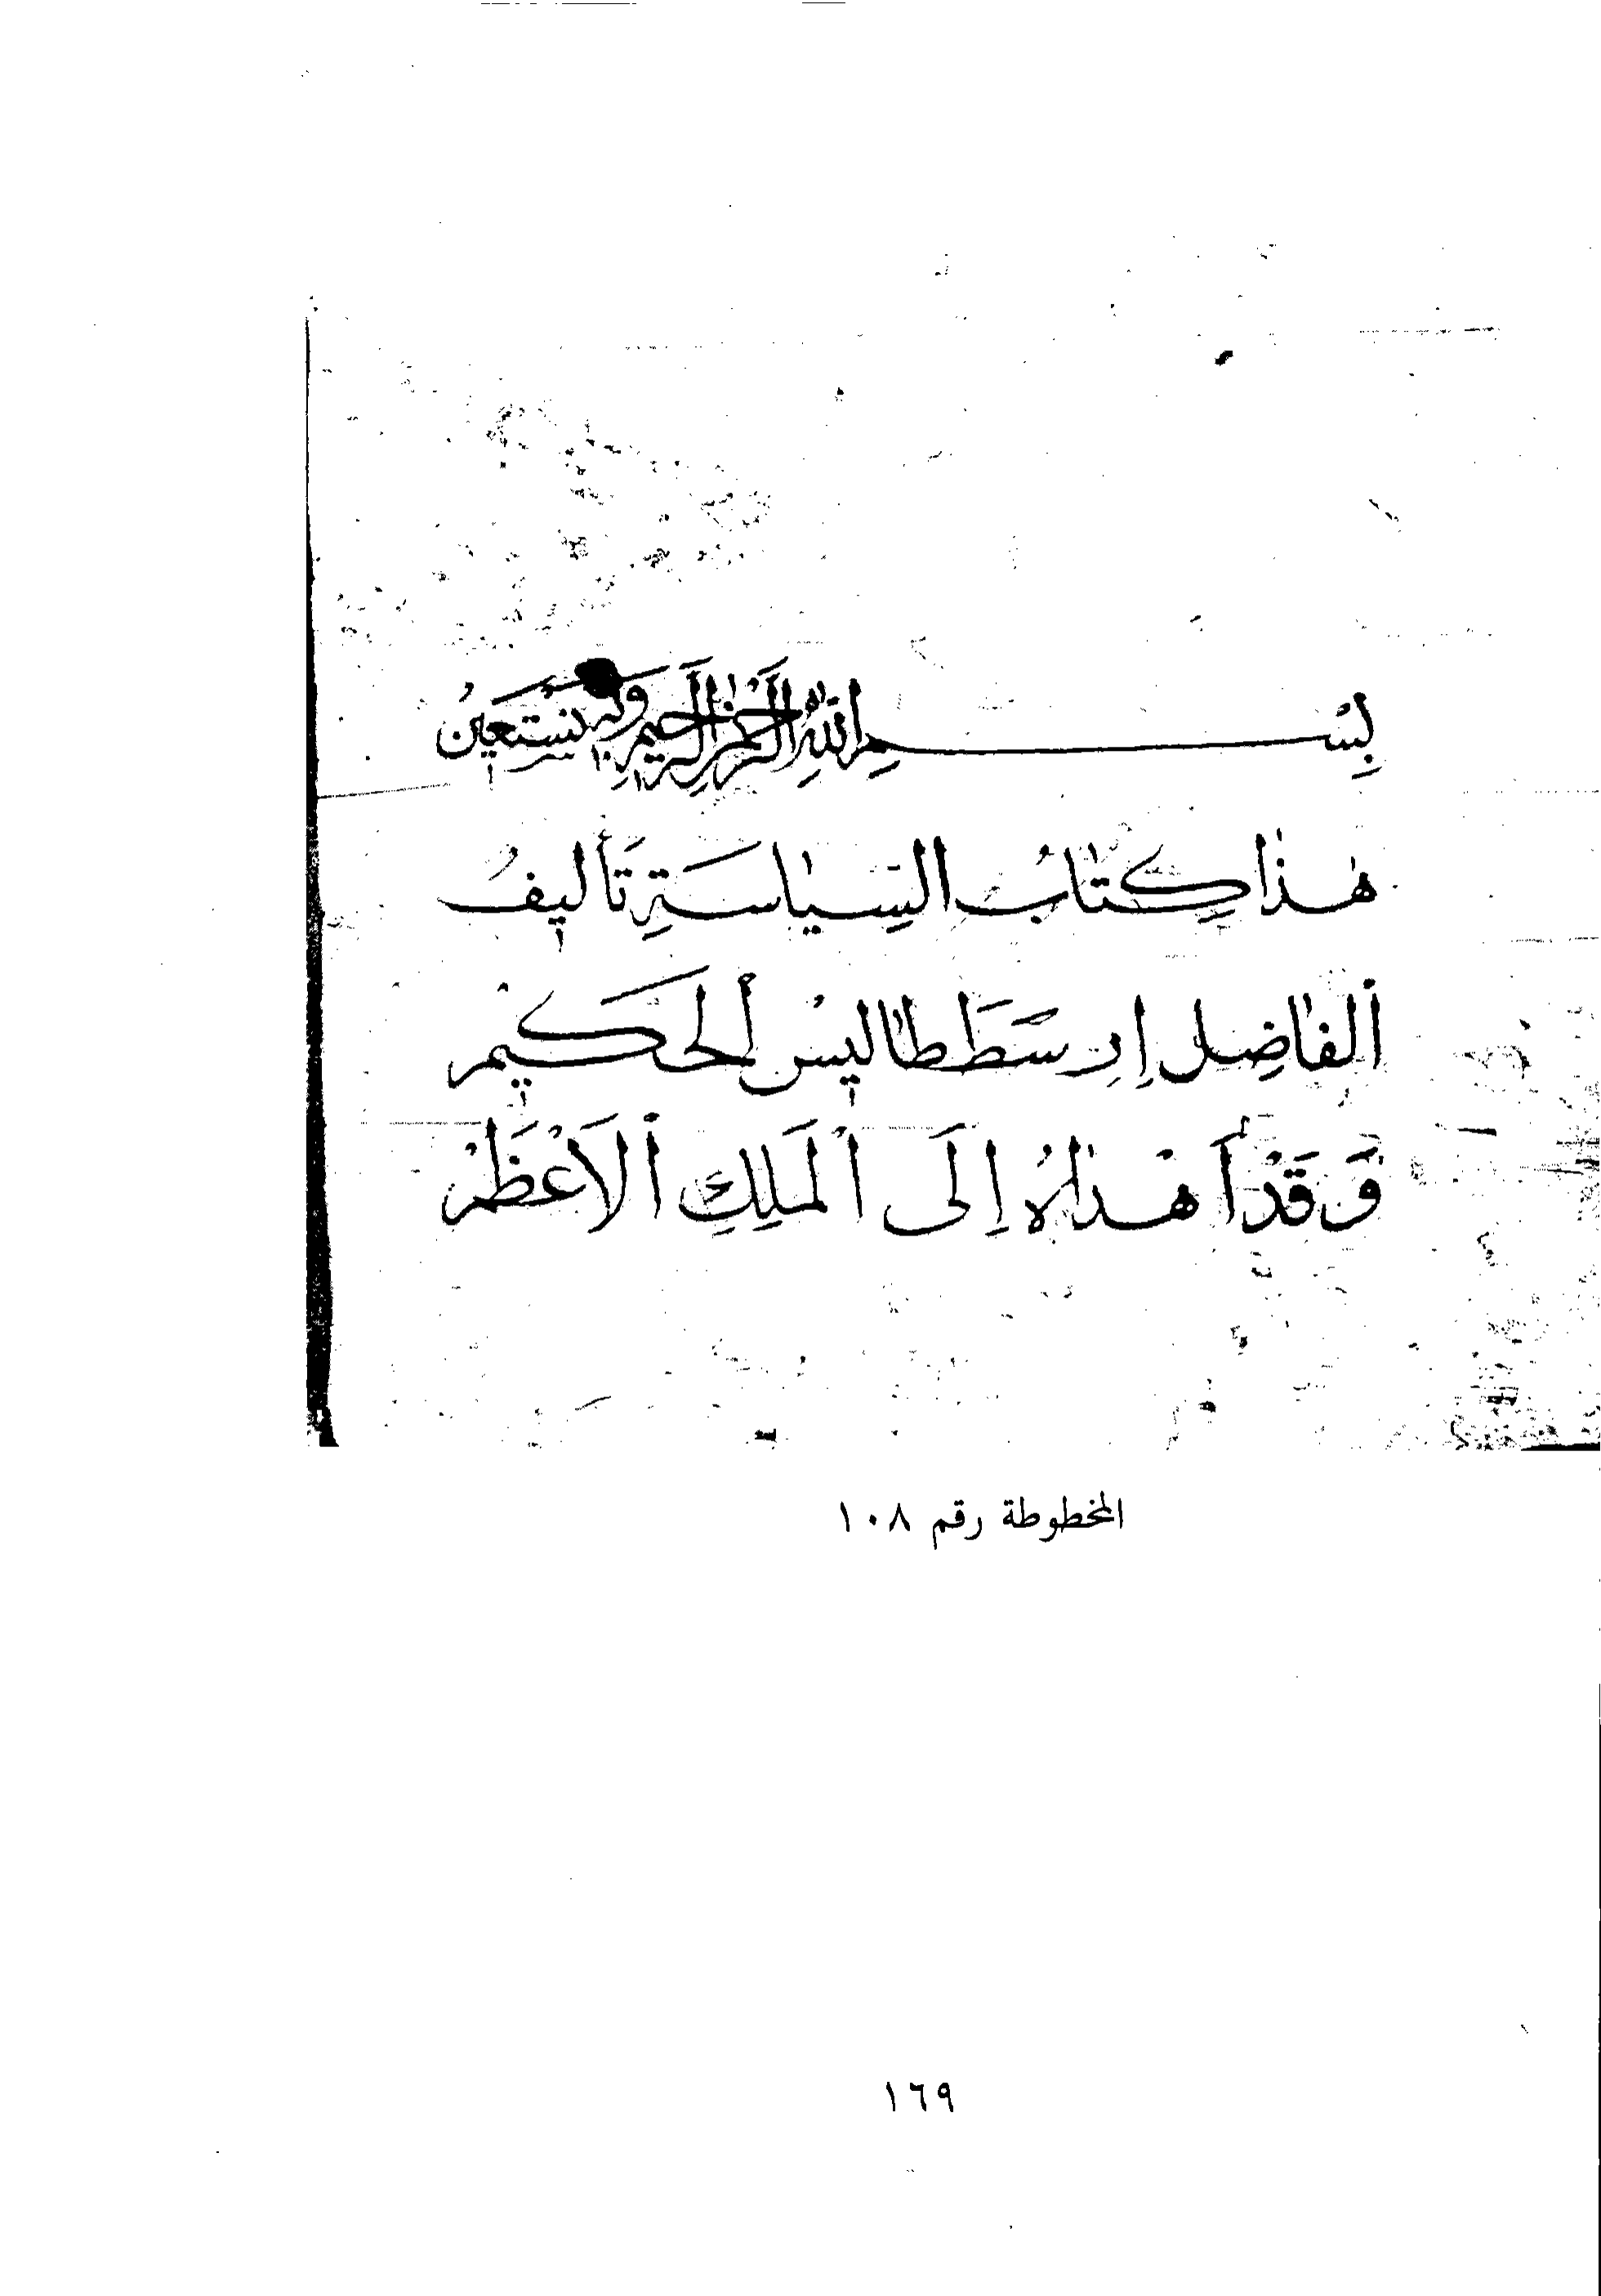 بِسْمِ اللّٰهِ الرَّحْمٰنِ الرَّحِيمِ وَبِهِ نَسْتَعِينُ
هٰذَا كِتَابُ السِّيَاسَةِ تَأليفُ
ألفَاضِل إرِسَطَطَاليسْ ألحَكيمْ
وَقَدْ أهْدَاهُ إلَى ألمَلِكِ ألاَعْظَمْ
المخطوطة رقم ١٠٨
١٦٩